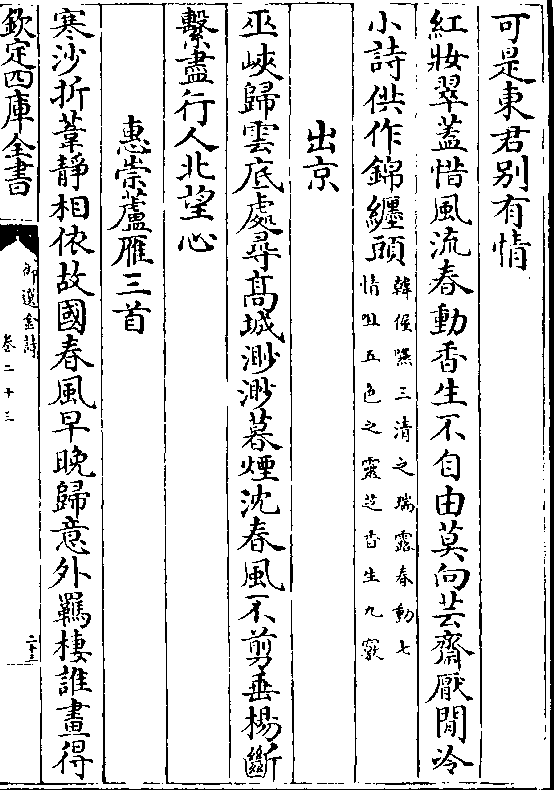 可是東君别有情
紅妝翠蓋惜風流春動香生不自由莫向芸齋厭閒冷
小詩供作錦纏頭
韓偓嚥三清之瑞露春動七
情咀五色之靈芝香生九竅
出京
巫峽歸雲底處尋高城渺渺暮煙沈春風不剪垂楊斷
繫盡行人北望心
惠崇蘆雁三首
寒沙折葦靜相依故國春風早晚歸意外羈棲誰畫得
欽定四庫全書
御選金詩
卷二十三
二十三